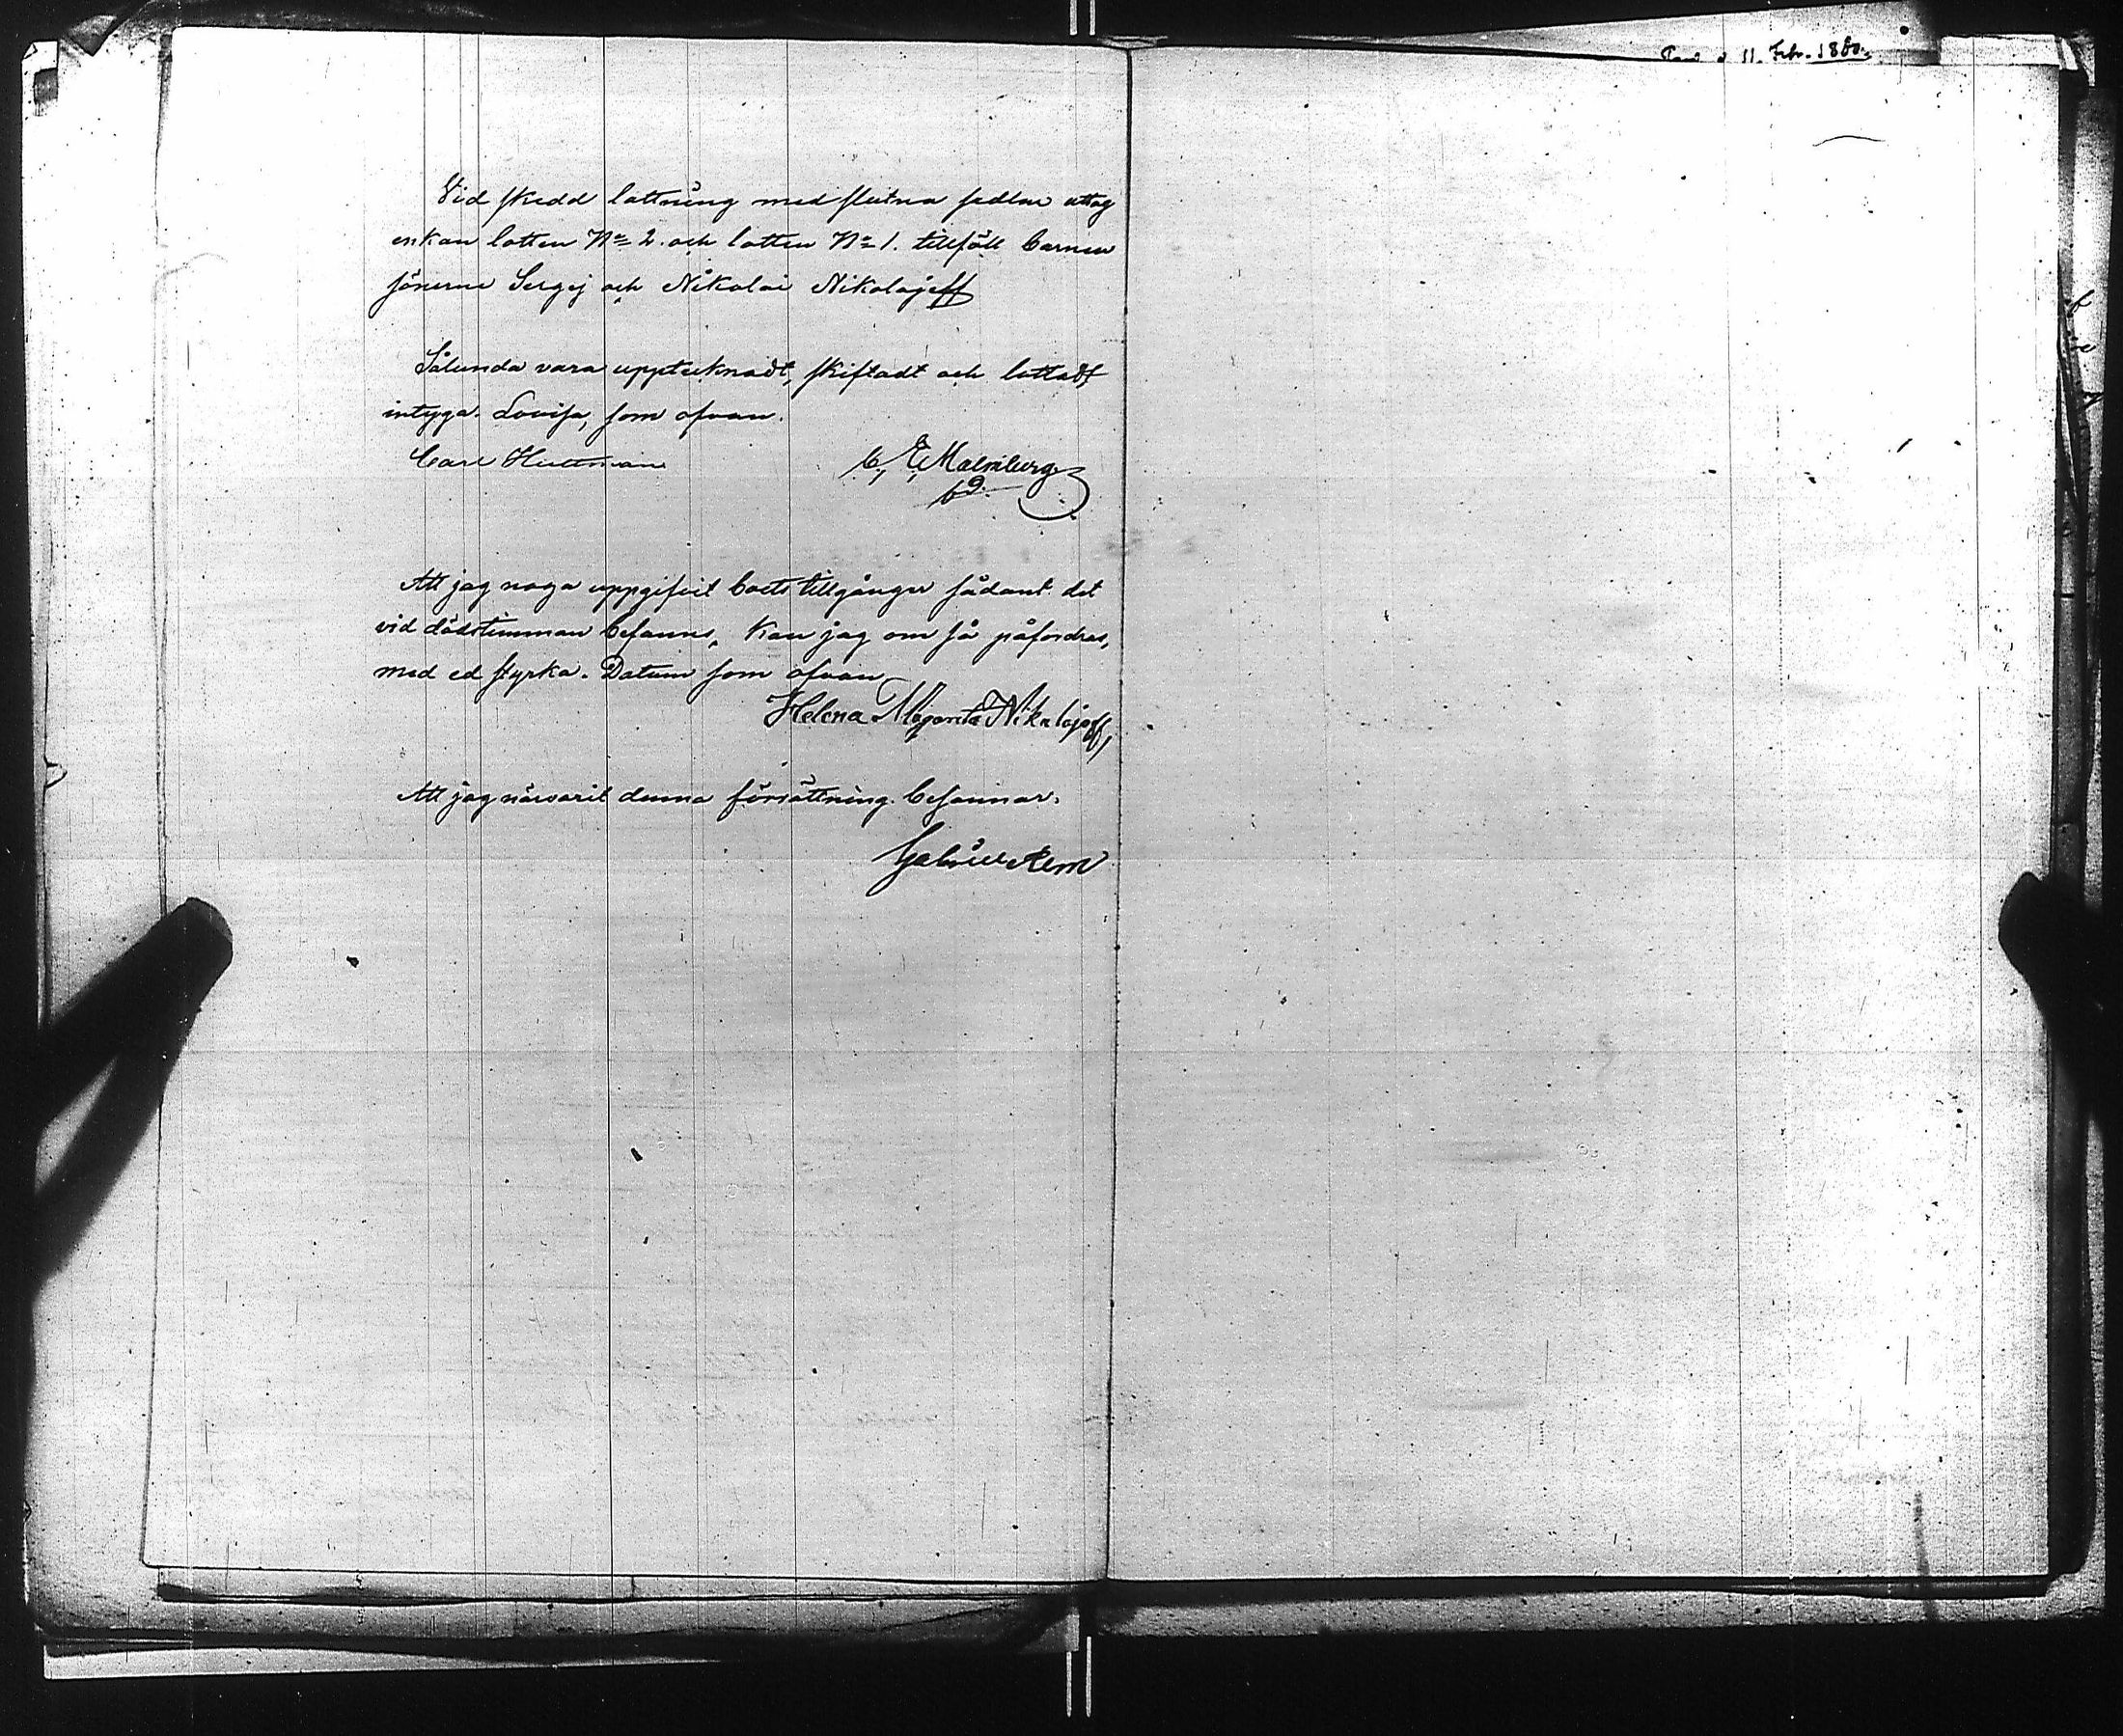 11. Febr. 1880.
Vid skedd lottning med slutna sedlar uttog
enkan lotten No 2. och lotten No 1. tillföll barnen
sönerne Sergej och Nikolai Nikolajeff
Sålunda vara upptecknadt, skiftadt och lottadt,
intyga. Lovisa, som ofvan.
Carl Huttman C, E, Malmberg
Att jag noga uppgifvit boets tillgångar sådant det
vid dödstimman befanns, kan jag om så påfordras,
med ed styrka. Datum som ofvan
Helena Margareta Nikolajeff,
Att jag närvarit denna förrättning befannar.
Gabriel Alm